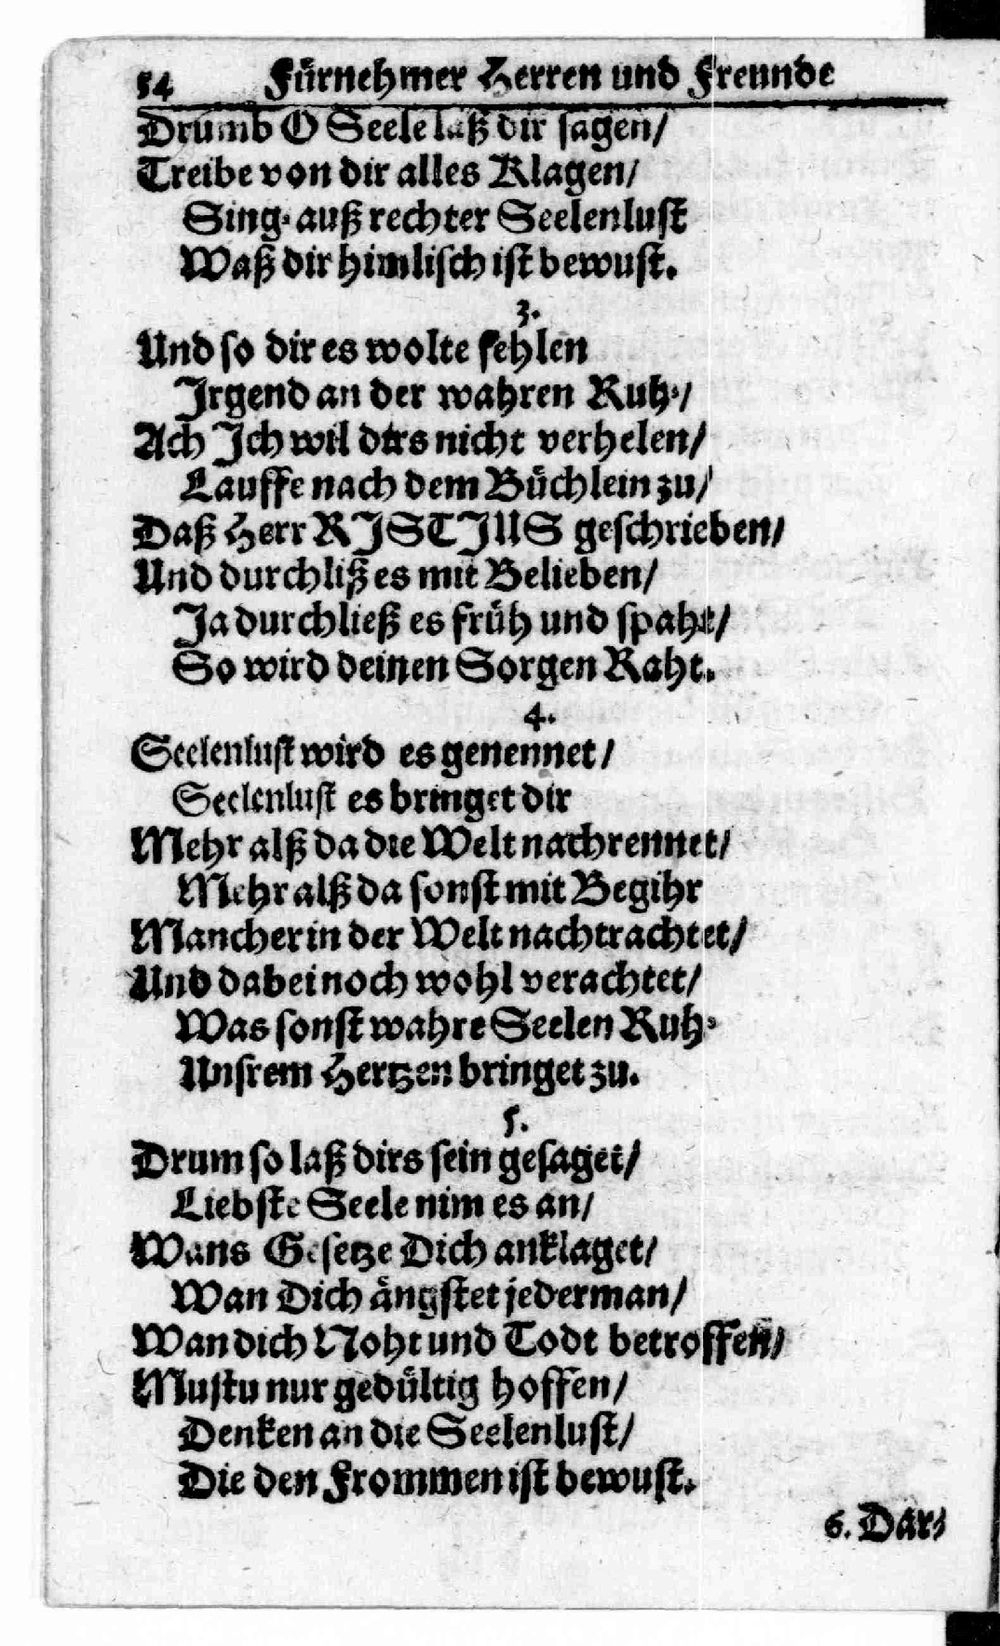 54 Fürnehmer Herren und Freunde
Drumb O Seele laß dir sagen/
Treibe von dir alles Klagen/
Sing auß rechter Seelenlust
Waß dir himlisch ist bewust.
3.
Und so dir es wolte fehlen
Irgend an der wahren Ruh/
Ach Ich wil dirs nicht verhelen/
Lauffe nach dem Büchlein zu/
Daß Herr RISTIUS geschrieben/
Und durchliß es mit Belieben/
Ja durchließ es früh und spaht/
So wird deinen Sorgen Raht.
4.
Seelenlust wird es genennet/
Seelenlust es bringet dir
Mehr alß da die Welt nachrennet/
Mehr alß da sonst mit Begihr
Mancher in der Welt nachtrachtet/
Und dabei noch wohl verachtet/
Was sonst wahre Seelen Ruh
Unsrem Hertzen bringet zu.
5.
Drum so laß dirs sein gesaget/
Liebste Seele nim es an/
Wans Gesetze Dich anklaget/
Wan Dich ängstet jederman/
Wan dich Noht und Todt betroffen/
Mustu nur gedültig hoffen/
Denken an die Seelenlust/
Die den Frommen ist bewust.
6. Dar-